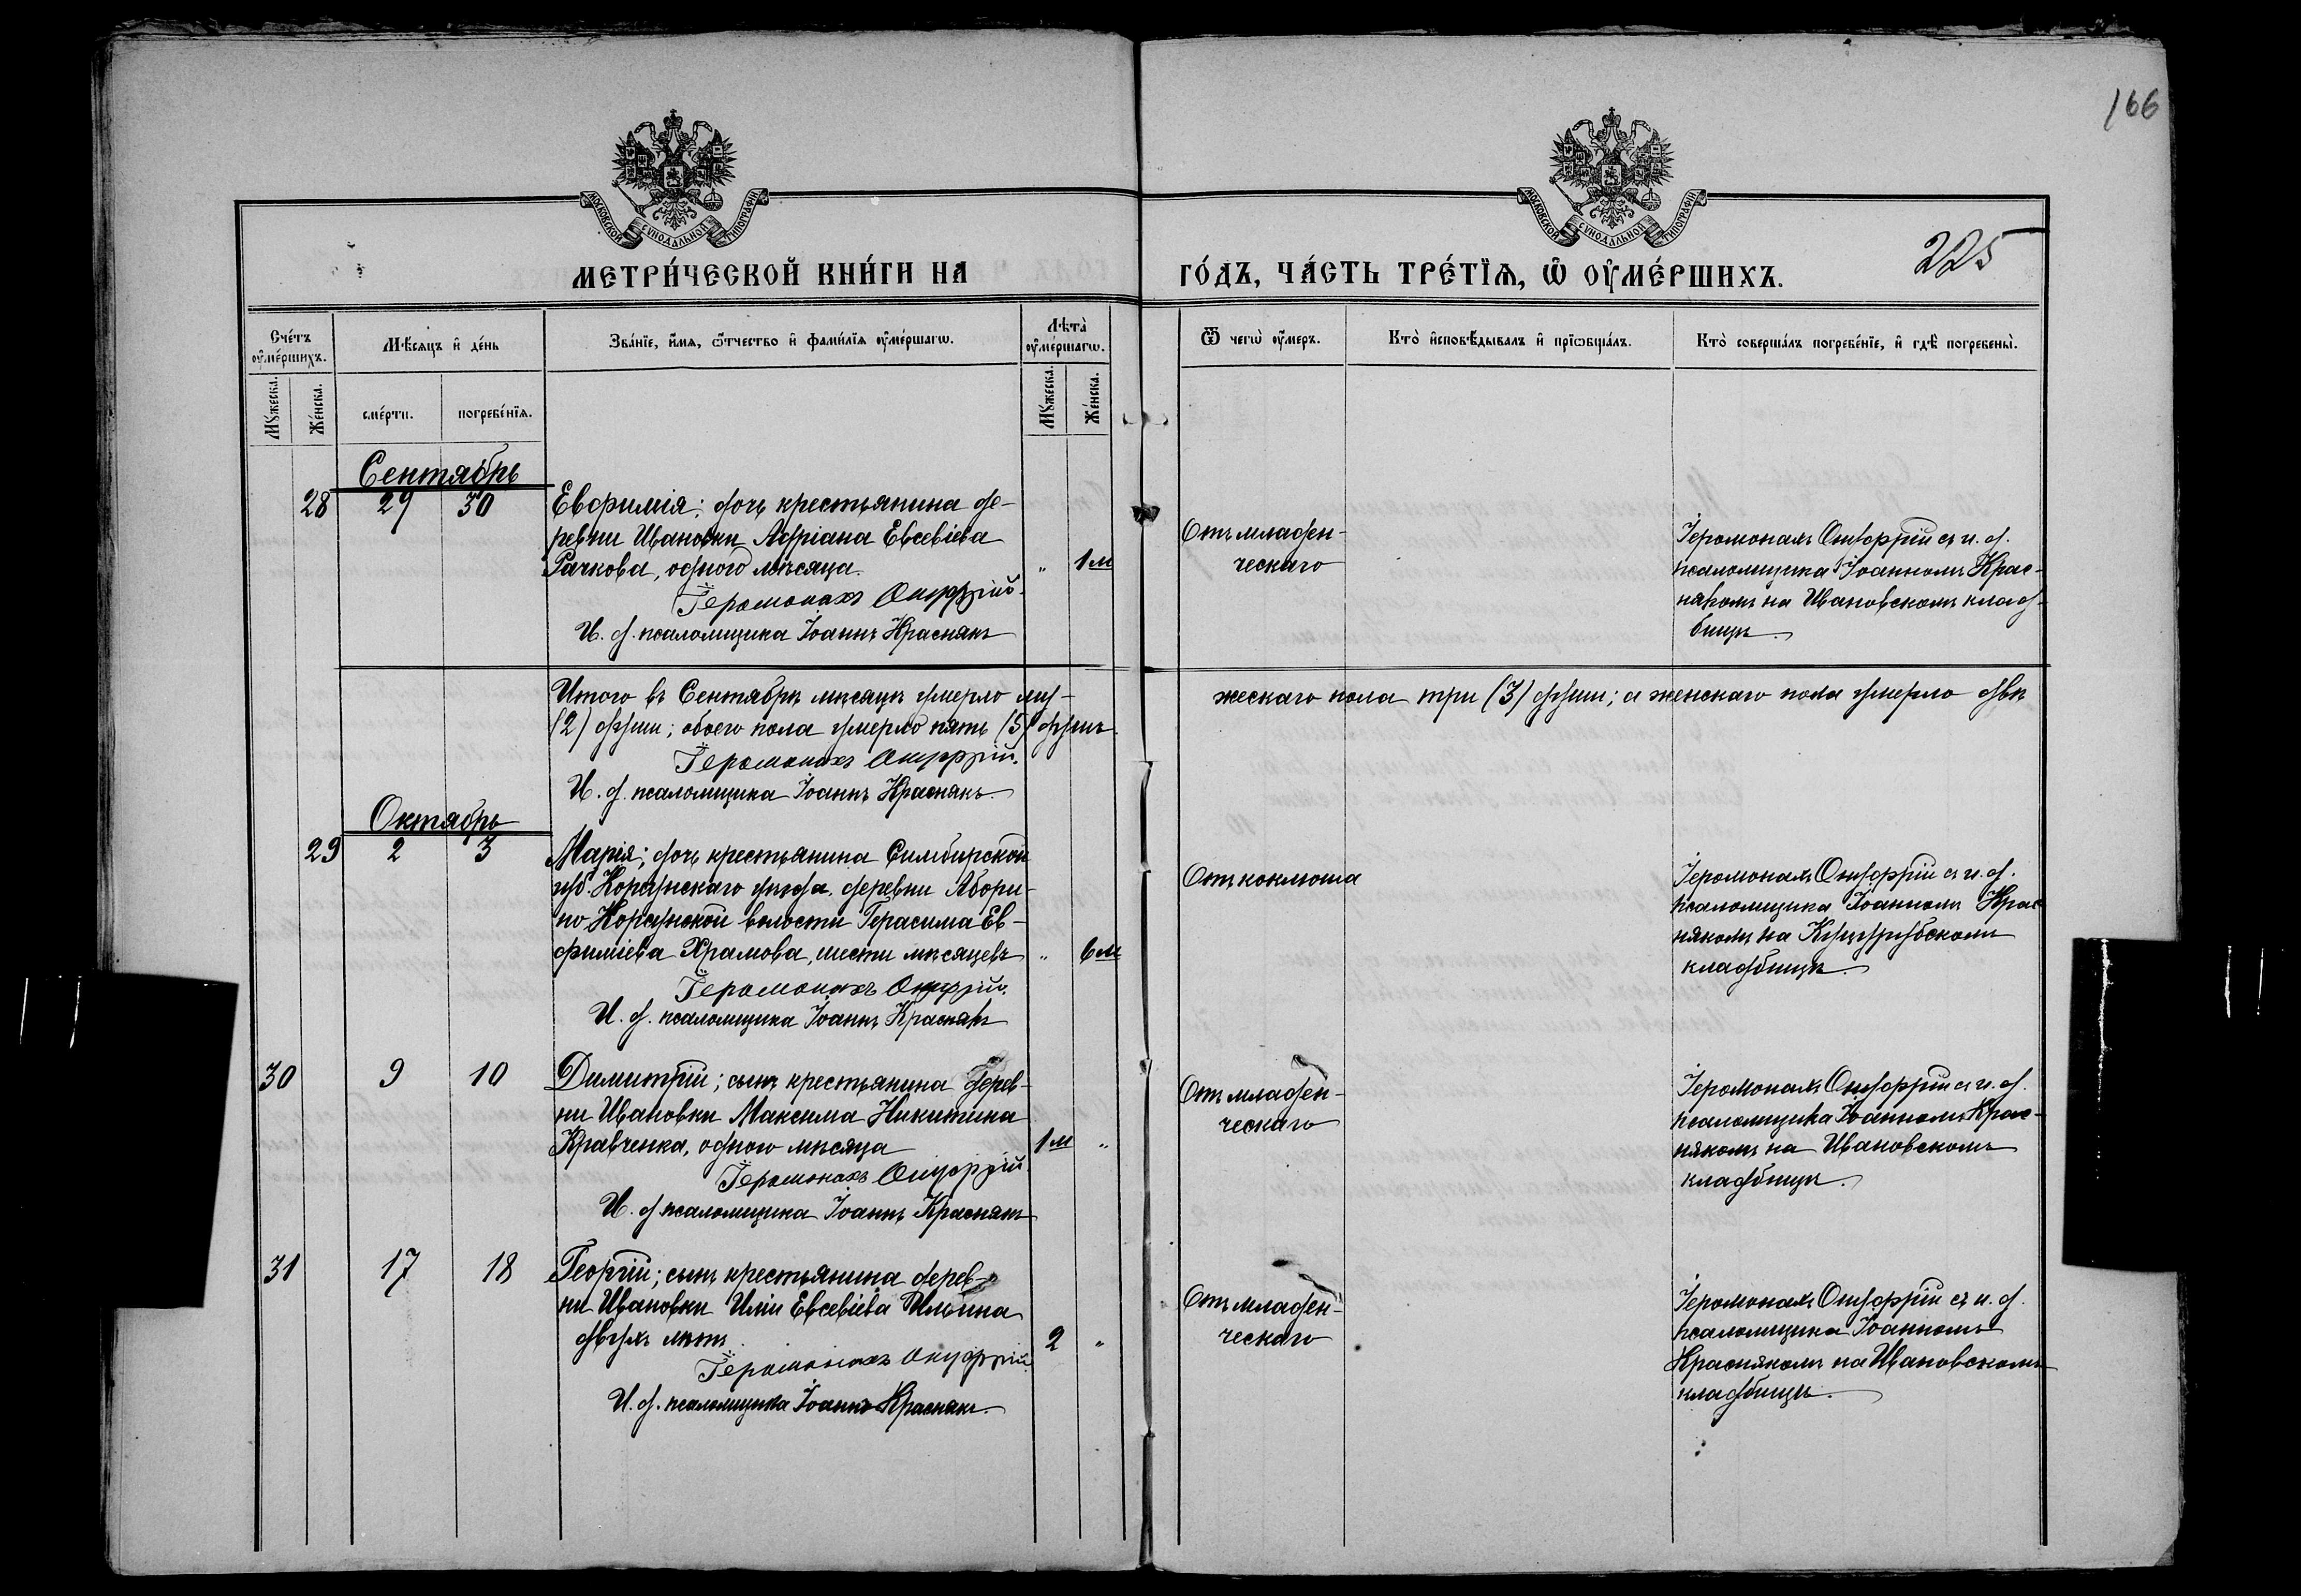 166
МОСКОВСКОЙ СѴНОДАЛЬНОЙ ТИПОГРАФІИ
МОСКОВСКОЙ СѴНОДАЛЬНОЙ ТИПОГРАФІИ
225
МЕТРИ́ЧЕСКОЙ КНИ́ГИ НА ГО́ДЪ, ЧА́СТЬ ТРЕ́ТІѦ, Ѡ ОУМЕ́РШИХЪ.
Сче́тъ оуме́ршихъ.
Мѣ́сѧцъ и де́нь
Зва́нїе, и́мѧ, ѻ́тчество и фами́лїѧ оуме́ршагѡ.
Лѣта̀ оуме́ршагѡ.
Ѿ чегѡ̀ оу́меръ.
Кто̀ исповѣ́дывалъ и прїѡбща́лъ.
Кто̀ соверша́лъ погребе́нїе, и гдѣ̀ погребены̀.
Мꙋ́жеска.
Же́нска.
сме́рти.
погребе́нїѧ.
Мꙋ́жеска.
Же́нска.
Сентябрь
28 29 30
Евфимія; дочь крестьянина де-
ревни Ивановки Адріана Евсевіева
Рачкова, одного мѣсяца. " 1 м
Іеромонахъ Онуфрій.
И. д. псаломщика Іоаннъ Краснякъ
Отъ младен-
ческаго
Іеромонахъ Онуфрій съ и. д.
псаломщика Іоанномъ Крас-
някомъ на Ивановскомъ клад-
бищѣ.
Итого въ Сентябрѣ мѣсяцѣ умерло му- жескаго пола три (3) души; а женскаго пола умерло двѣ
(2) души; обоего пола умерло пять (5) душъ.
Іеромонахъ Онуфрій.
И. д. псаломщика Іоаннъ Краснякъ.
Октябрь
29 2 3
Марія; дочь крестьянина Симбирской
губ. Корсунскаго уѣзда деревни
Корсунской волости Герасима Ев-
фиміева Храмова, шести мѣсяцевъ " 6 м
Іеромонахъ Онуфрій.
И. д. псаломщика Іоаннъ Краснякъ
Отъ коклюша
Іеромонахъ Онуфрій съ и. д.
псаломщика Іоанномъ Крас-
някомъ на
кладбищѣ.
30 9 10
Димитрій; сынъ крестьянина дерев-
ни Ивановки Максима Никитина
Кравченка, одного мѣсяца 1 м "
Іеромонахъ Онуфрій.
И. д. псаломщика Іоаннъ Краснякъ
Отъ младен-
ческаго
Іеромонахъ Онуфрій съ и. д.
псаломщика Іоанномъ Крас-
някомъ на Ивановскомъ
кладбищѣ.
31 17 18
Георгій; сынъ крестьянина дерев-
ни Ивановки Иліи Евсевіева Ильина
двухъ лѣтъ 2 "
Іеромонахъ Онуфрій.
И. д. псаломщика Іоаннъ Краснякъ.
Отъ младен-
ческаго
Іеромонахъ Онуфрій съ и. д.
псаломщика Іоанномъ
Краснякомъ на Ивановскомъ
кладбищѣ.